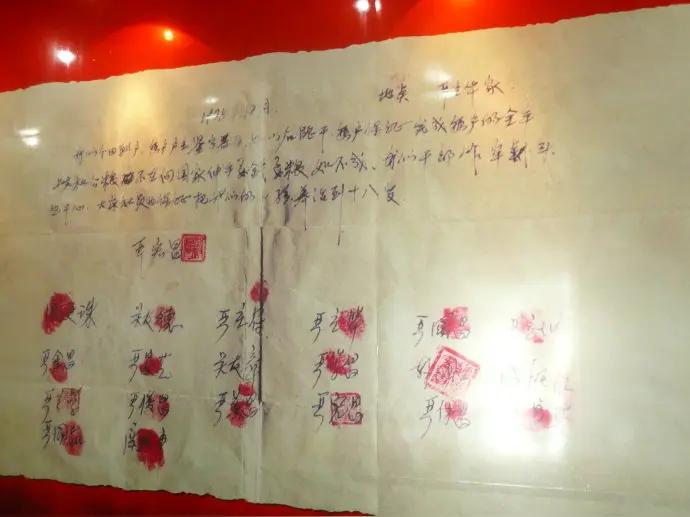 1978年12月 地点 严立华家
我们分田到户，每户户主签字盖章，如以后能干，每户保证完成每户的全年
上交和公粮，不在向国家伸手要钱要粮，如不成，我们干部作牢刹头
也干心，大家社员也保证把我们的小孩养活到十八岁
严宏昌
珠 关友德 严立符 严立华 严国昌
严金昌 严家芝 关友章 严学昌
严俊昌 严美昌 严宏昌 严付昌
严国品